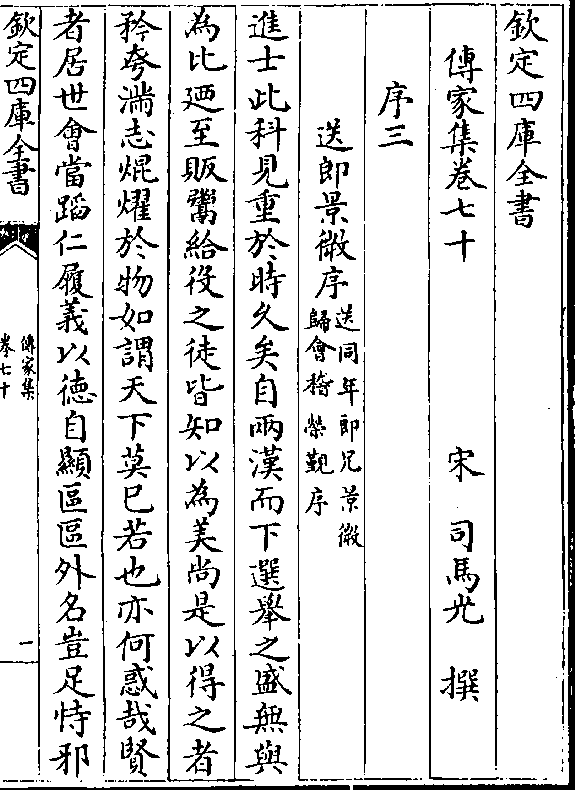 欽定四庫全書
傳家集卷七十　宋　司馬光　撰
序三
送郎景微序
送同年郎兄景微
歸會稽榮覲序
進士此科見重於時久矣自兩漢而下選舉之盛無與
為比廼至販鬻給役之徒皆知以為美尚是以得之者
矜夸滿志焜燿於物如謂天下莫已若也亦何惑哉賢
者居世會當蹈仁履義以德自顯區區外名豈足恃邪
欽定四庫全書
傳家集
卷七十
一